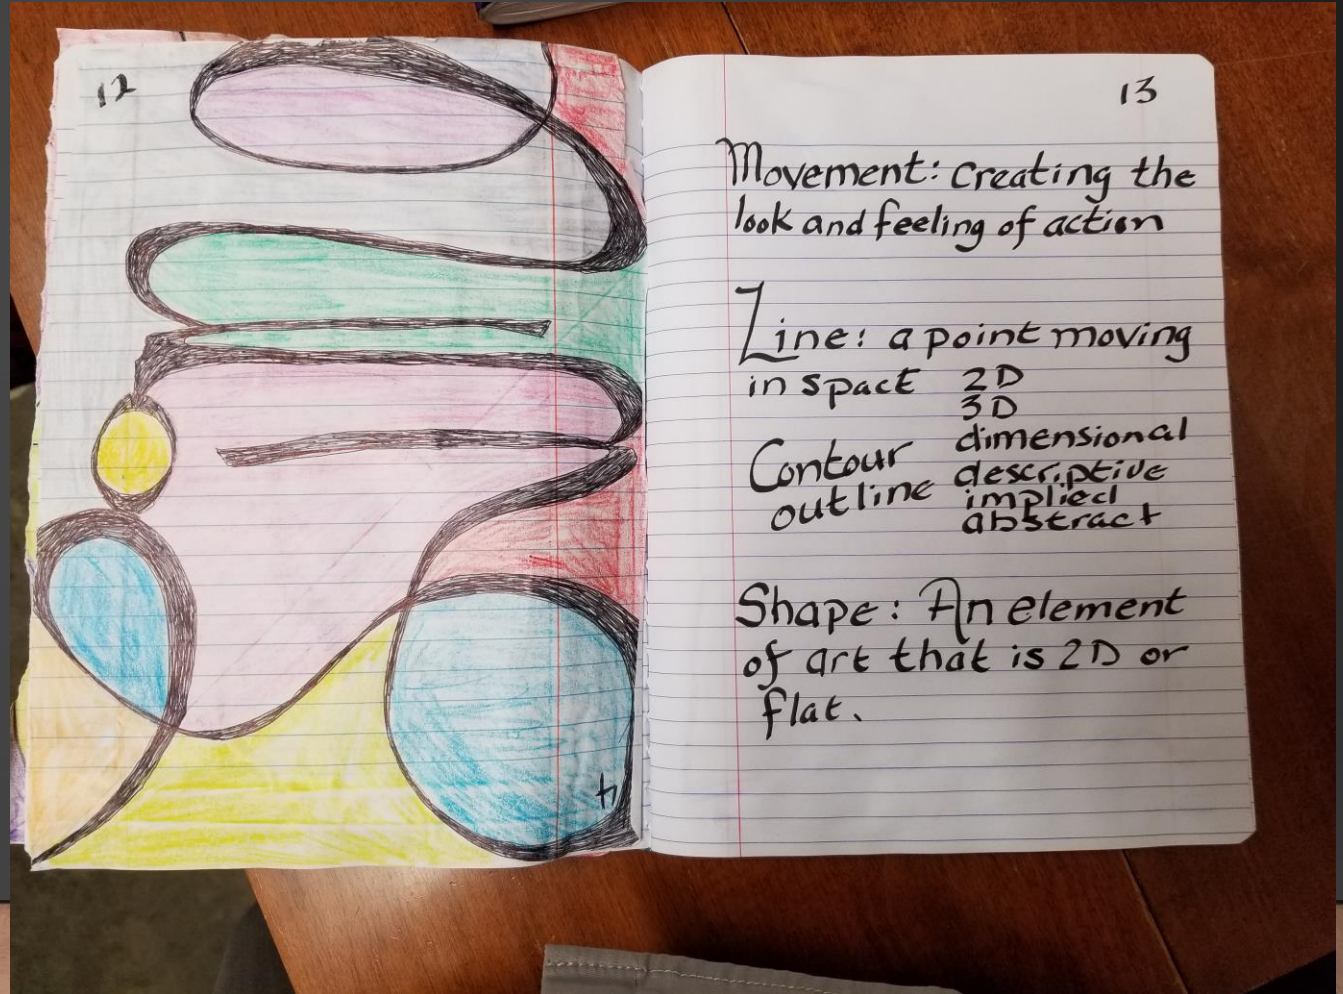 12
4
13
Movement: creating the
look and feeling of action
Line: a point moving
in space 2D
3D
Contour dimensional
outline descriptive
implied
abstract
Shape: An element
of art that is 2D or
flat.